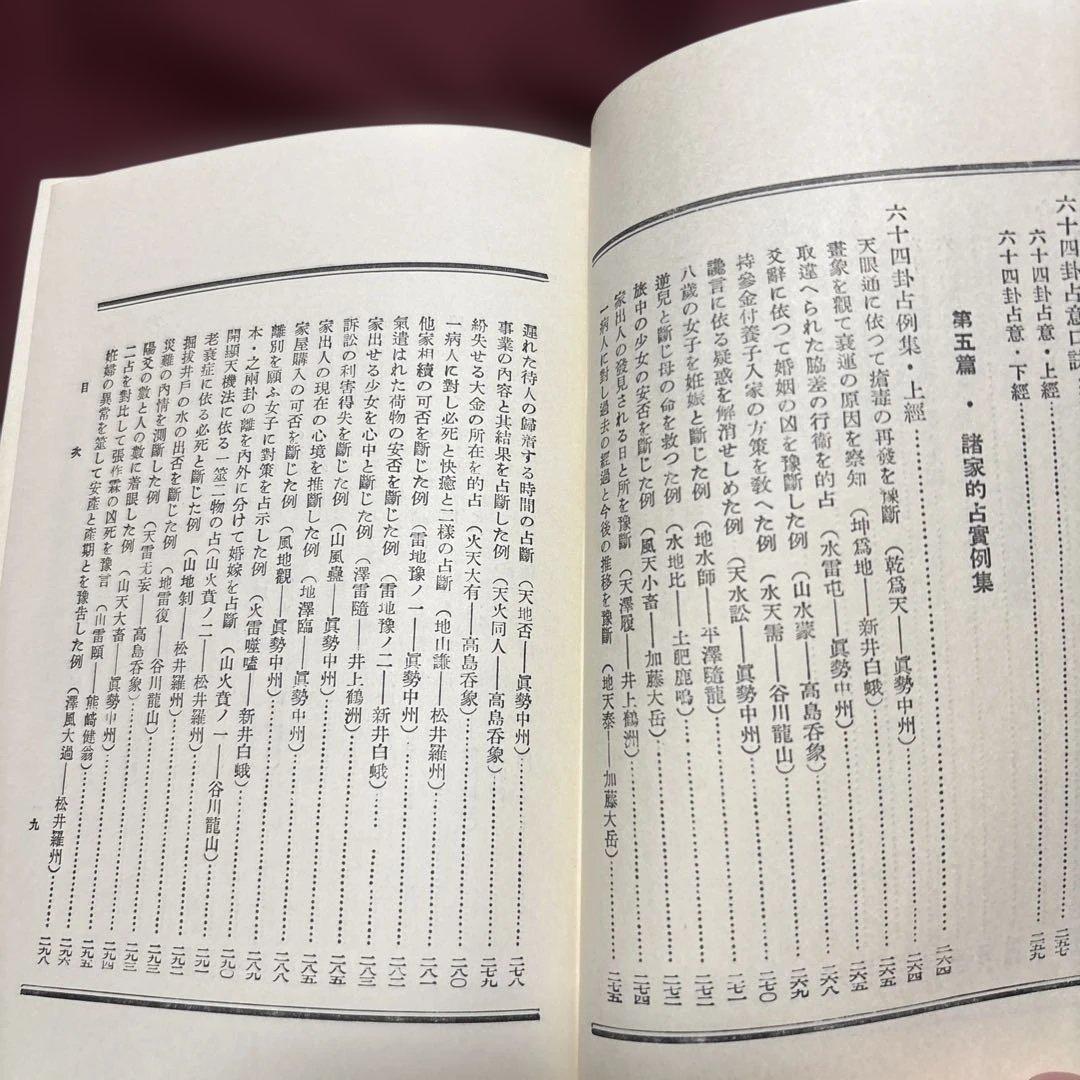 六十四卦占意口訣
六十四卦占意・上經……二五七
六十四卦占意・下經……二五九
第五篇・諸家的占實例集
六十四卦占例集・上經……二六四
天眼通に依つて瘡毒の再發を豫斷（乾爲天——眞勢中州）……二六四
畫象を觀て衰運の原因を察知（坤爲地——新井白蛾）……二六五
取違へられた脇差の行衞を的占（水雷屯——眞勢中州）……二六五
爻辭に依つて婚姻の凶を豫斷した例（山水蒙——高島呑象）……二六八
持參金付養子入家の方策を敎へた例（水天需——谷川龍山）……二六九
讒言に依る疑惑を解消せしめた例（天水訟——眞勢中州）……二七〇
八歲の女子を妊娠と斷じた例（地水師——平澤隨龍）……二七一
逆兒と斷じ母の命を救つた例（水地比——土肥鹿鳴）……二七二
旅中の少女の安否を斷じた例（風天小畜——加藤大岳）……二七二
家出人の發見される日と所を豫斷（天澤履——井上鶴洲）……二七四
一病人に對し過去の經過と今後の推移を豫斷（地天泰——加藤大岳）……二七五
遲れた待人の歸着する時間の占斷（天地否——眞勢中州）……二七八
事業の內容と其結果を占斷した例（天火同人——高島呑象）……二七九
紛失せる大金の所在を的占（火天大有——高島呑象）……二八〇
一病人に對し必死と快癒と二樣の占斷（地山謙——松井羅州）……二八一
他家相續の可否を斷じた例（雷地豫ノ一——眞勢中州）……二八二
氣遣はれた荷物の安否を斷じた例（雷地豫ノ二——新井白蛾）……二八三
家出せる少女を心中と斷じた例（澤雷隨——井上鶴洲）……二八五
訴訟の利害得失を斷じた例（山風蠱——眞勢中州）……二八五
家出人の現在の心境を推斷した例（地澤臨——眞勢中州）……二八八
家屋購入の可否を斷じた例（風地觀——眞勢中州）……二八八
離別を願ふ女子に對策を占示した例（火雷噬嗑——新井白蛾）……二八九
本・之兩卦の離を內外に分けて婚嫁を占斷（山火賁ノ一——谷川龍山）……二九〇
開顯天機法に依る一筮二物の占（山火賁ノ二——松井羅州）……二九一
老衰症に依る必死と斷じた例（山地剝——松井羅州）……二九二
掘拔井戶の水の出否を斷じた例（地雷復——谷川龍山）……二九三
災難の內情を測斷した例（天雷无妄——高島呑象）……二九三
陽爻の數と人の數に着眼した例（山天大畜——眞勢中州）……二九四
二占を對比して張作霖の凶死を豫言（山雷頤——熊崎健翁）……二九五
姙婦の異常を筮して安產と產期とを豫告した例（澤風大過——松井羅州）……二九六
二九八
目次
九